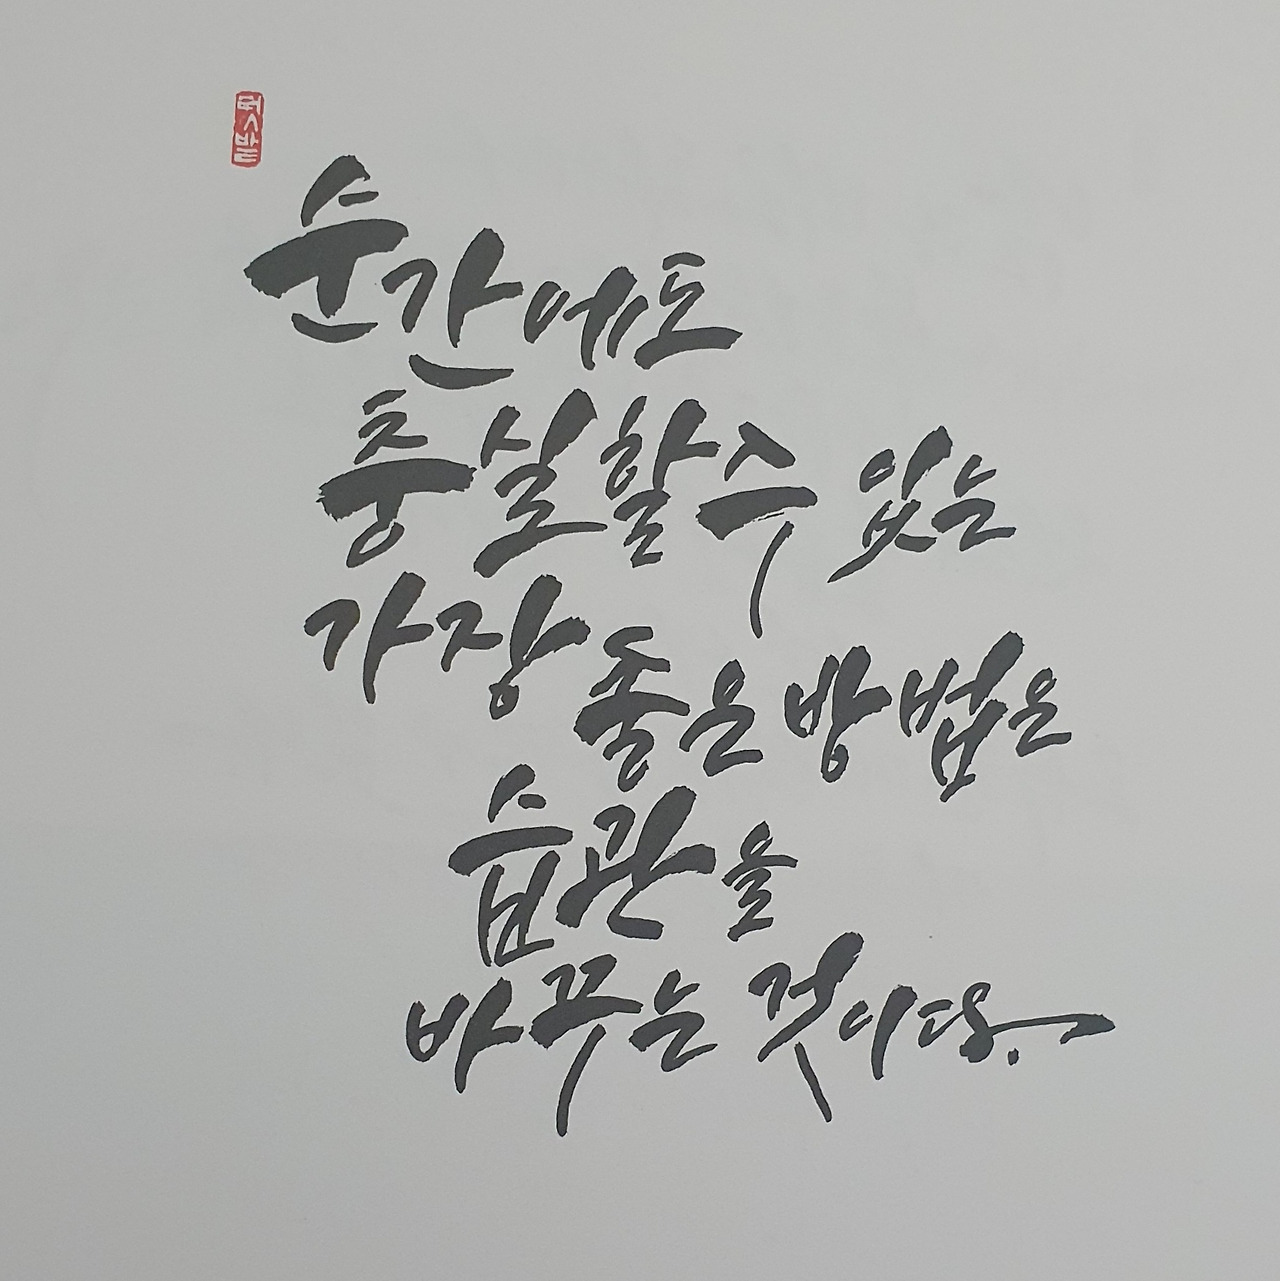 순간에도
충실할 수 있는
가장 좋은 방법은
습관을
바꾸는 것이다.